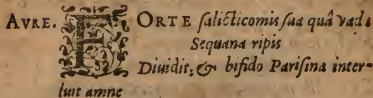 AVRE. FORTE salicticomis sua quâ vada
Sequana ripis
Diuidit, & bifido Parisina inter-
luit amne